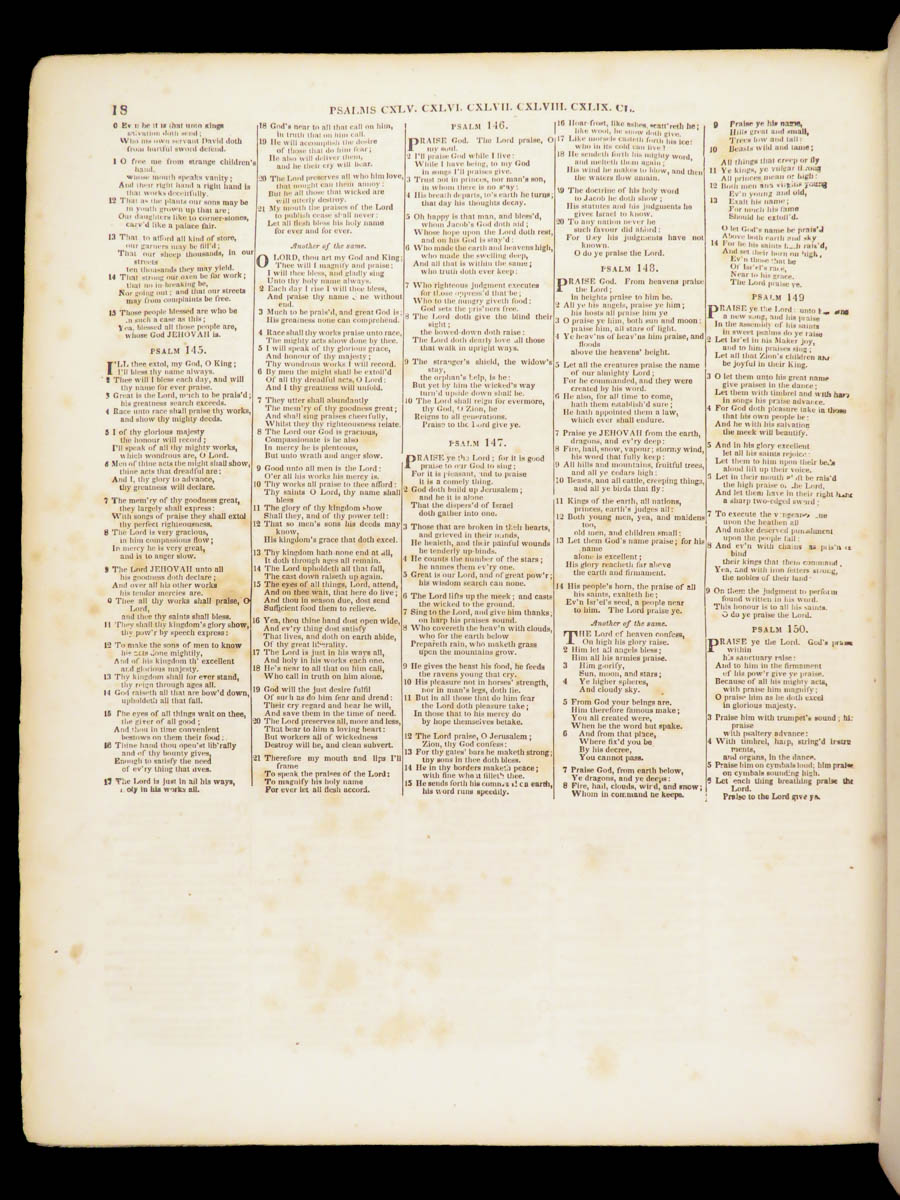 18
PSALMS CXLV. CXLVI. CXLVII. CXLVIII. CXLIX. CL.
6 Ev'n he it is that unto kings
salvation doth send;
Who his own servant David doth
from hurtful sword defend.
1 O free me from strange children's
hand,
whose mouth speaks vanity;
And their right hand a right hand is
that works deceitfully.
12 That as the plants our sons may be
in youth grown up that are;
Our daughters like to corner-stones,
carv'd like a palace fair.
13 That to afford all kind of store,
our garners may be fill'd;
That our sheep thousands, in our
streets
ten thousands they may yield.
14 That strong our oxen be for work;
that no in-breaking be,
Nor going out; and that our streets
may from complaints be free.
15 Those people blessed are who be
in such a case as this;
Yea, blessed all those people are,
whose God JEHOVAH is.
PSALM 145.
I'LL thee extol, my God, O King;
I'll bless thy name always.
2 Thee will I bless each day, and will
thy name for ever praise.
3 Great is the Lord, much to be prais'd;
his greatness search exceeds.
4 Race unto race shall praise thy works,
and show thy mighty deeds.
5 I of thy glorious majesty
the honour will record;
I'll speak of all thy mighty works,
which wondrous are, O Lord.
6 Men of thine acts the might shall show,
thine acts that dreadful are:
And I, thy glory to advance,
thy greatness will declare.
7 The mem'ry of thy goodness great,
they largely shall express:
With songs of praise they shall extol
thy perfect righteousness.
8 The Lord is very gracious,
in him compassions flow;
In mercy he is very great,
and is to anger slow.
9 The Lord JEHOVAH unto all
his goodness doth declare;
And over all his other works
his tender mercies are.
0 Thee all thy works shall praise, O
Lord,
and thee thy saints shall bless.
11 They shall thy kingdom's glory show,
thy pow'r by speech express:
12 To make the sons of men to know
his acts done mightily,
And of his kingdom th' excellent
and glorious majesty.
13 Thy kingdom shall for ever stand,
thy reign through ages all.
14 God raiseth all that are bow'd down,
upholdeth all that fall.
15 The eyes of all things wait on thee,
the giver of all good;
And thou in time convenient
bestows on them their food:
16 Thine hand thou open'st lib'rally
and of thy bounty gives,
Enough to satisfy the need
of ev'ry thing that lives.
17 The Lord is just in all his ways,
holy in his works all.
18 God's near to all that call on him,
in truth that on him call.
19 He will accomplish the desire
of those that do him fear;
He also will deliver them,
and he their cry will hear.
20 The Lord preserves all who him love,
that nought can them annoy:
But he all those that wicked are
will utterly destroy.
21 My mouth the praises of the Lord
to publish cease shall never:
Let all flesh bless his holy name
for ever and for ever.
Another of the same.
O LORD, thou art my God and King;
Thee will I magnify and praise:
I will thee bless, and gladly sing
Unto thy holy name always.
2 Each day I rise I will thee bless,
And praise thy name time without
end.
3 Much to be prais'd, and great God is;
His greatness none can comprehend.
4 Race shall thy works praise unto race,
The mighty acts show done by thee.
5 I will speak of thy glorious grace,
And honour of thy majesty;
Thy wondrous works I will record.
6 By men the might shall be extoll'd
Of all thy dreadful acts, O Lord:
And I thy greatness will unfold.
7 They utter shall abundantly
The mem'ry of thy goodness great;
And shall sing praises cheerfully,
Whilst they thy righteousness relate.
8 The Lord our God is gracious,
Compassionate is he also
In mercy he is plenteous,
But unto wrath and anger slow.
9 Good unto all men is the Lord:
O'er all his works his mercy is.
10 Thy works all praise to thee afford:
Thy saints O Lord, thy name shall
bless
11 The glory of thy kingdom show
Shall they, and of thy power tell:
12 That so men's sons his deeds may
know,
His kingdom's grace that doth excel.
13 Thy kingdom hath none end at all,
It doth through ages all remain.
14 The Lord upholdeth all that fall,
The cast down raiseth up again.
15 The eyes of all things, Lord, attend,
And on thee wait, that here do live;
And thou in season due, dost send
Sufficient food them to relieve.
16 Yea, thou thine hand dost open wide,
And ev'ry thing dost satisfy
That lives, and doth on earth abide,
Of thy great liberality.
17 The Lord is just in his ways all,
And holy in his works each one.
18 He's near to all that on him call,
Who call in truth on him alone.
19 God will the just desire fulfil
Of such as do him fear and dread;
Their cry regard and hear he will,
And save them in the time of need.
20 The Lord preserves all, more and less,
That bear to him a loving heart:
But workers all of wickedness
Destroy will he, and clean subvert.
21 Therefore my mouth and lips I'll
frame
To speak the praises of the Lord;
To magnify his holy name
For ever let all flesh accord.
PSALM 146.
PRAISE God. The Lord praise, O
my soul.
2 I'll praise God while I live:
While I have being, to my God
in songs I'll praises give.
3 Trust not in princes, nor man's son,
in whom there is no stay:
4 His breath departs, to's earth he turns;
that day his thoughts decay.
5 Oh happy is that man, and bless'd,
whom Jacob's God doth aid;
Whose hope upon the Lord doth rest,
and on his God is stay'd:
6 Who made the earth and heavens high,
who made the swelling deep,
And all that is within the same;
who truth doth ever keep:
7 Who righteous judgment executes
for those oppress'd that be;
Who to the hungry giveth food:
God sets the pris'ners free.
8 The Lord doth give the blind their
sight;
the bowed-down doth raise:
The Lord doth dearly love all those
that walk in upright ways.
9 The stranger's shield, the widow's
stay,
the orphan's help, is he:
But yet by him the wicked's way
turn'd upside down shall be.
10 The Lord shall reign for evermore,
thy God, O Zion, he
Reigns to all generations.
Praise to the Lord give ye.
PSALM 147.
PRAISE ye the Lord; for it is good
praise to our God to sing;
For it is pleasant, and to praise
it is a comely thing.
2 God doth build up Jerusalem;
and he it is alone
That the dispers'd of Israel
doth gather into one.
3 Those that are broken in their hearts,
and grieved in their minds,
He healeth, and their painful wounds
he tenderly up-binds.
4 He counts the number of the stars;
he names them ev'ry one.
5 Great is our Lord, and of great pow'r;
his wisdom search can none.
6 The Lord lifts up the meek; and casts
the wicked to the ground.
7 Sing to the Lord, and give him thanks;
on harp his praises sound.
8 Who covereth the heav'n with clouds,
who for the earth below
Prepareth rain, who maketh grass
upon the mountains grow.
9 He gives the beast his food, he feeds
the ravens young that cry.
10 His pleasure not in horses' strength,
nor in man's legs, doth lie.
11 But in all those that do him fear
the Lord doth pleasure take;
In those that to his mercy do
by hope themselves betake.
12 The Lord praise, O Jerusalem;
Zion, thy God confess:
13 For thy gates' bars he maketh strong;
thy sons in thee doth bless.
14 He in thy borders maketh peace;
with fine wheat filleth thee.
15 He sends forth his command on earth,
his word runs speedily.
16 Hoar-frost, like ashes, scatt'reth he;
like wool, he snow doth give.
17 Like morsels casteth forth his ice:
who in its cold can live?
18 He sendeth forth his mighty word,
and melteth them again;
His wind he makes to blow, and then
the waters flow amain.
19 The doctrine of his holy word
to Jacob he doth show;
His statutes and his judgments he
gives Israel to know.
20 To any nation never he
such favour did afford;
For they his judgments have not
known.
O do ye praise the Lord.
PSALM 148.
PRAISE God. From heavens praise
the Lord;
in heights praise to him be.
2 All ye his angels, praise ye him;
his hosts all praise him ye
3 O praise ye him, both sun and moon:
praise him, all stars of light.
4 Ye heav'ns of heav'ns him praise, and
floods
above the heavens' height.
5 Let all the creatures praise the name
of our almighty Lord;
For he commanded, and they were
created by his word.
6 He also, for all time to come,
hath them establish'd sure;
He hath appointed them a law,
which ever shall endure.
7 Praise ye JEHOVAH from the earth,
dragons, and ev'ry deep:
8 Fire, hail, snow, vapour; stormy wind,
his word that fully keep:
9 All hills and mountains, fruitful trees,
and all ye cedars high:
10 Beasts, and all cattle, creeping things,
and all ye birds that fly:
11 Kings of the earth, all nations,
princes, earth's judges all:
12 Both young men, yea, and maidens
too,
old men, and children small:
13 Let them God's name praise; for his
name
alone is excellent;
His glory reacheth far above
the earth and firmament.
14 His people's horn, the praise of all
his saints, exalteth he;
Ev'n Isr'el's seed, a people near
to him. The Lord praise ye.
Another of the same.
THE Lord of heaven confess,
On high his glory raise.
2 Him let all angels bless;
Him all his armies praise.
3 Him glorify,
Sun, moon, and stars;
4 Ye higher spheres,
And cloudy sky.
5 From God your beings are.
Him therefore famous make;
You all created were,
When he the word but spake.
6 And from that place,
Where fix'd you be
By his decree,
You cannot pass.
7 Praise God, from earth below,
Ye dragons, and ye deeps:
8 Fire, hail, clouds, wind, and snow;
Whom in command he keeps.
9 Praise ye his name,
Hills great and small,
Trees low and tall:
10 Beasts wild and tame;
All things that creep or fly
11 Ye kings, ye vulgar throng
All princes mean or high:
12 Both men and virgins young
Ev'n young and old,
13 Exalt his name;
For much his fame
Should be extoll'd.
O let God's name be prais'd
Above both earth and sky
14 For he his saints hath rais'd,
And set their horn on high,
Ev'n those that be
Of Isr'el's race,
Near to his grace.
The Lord praise ye.
PSALM 149
PRAISE ye the Lord: unto sing
a new song, and his praise
In the assembly of his saints
in sweet psalms do ye raise
2 Let Isr'el in his Maker joy,
and to him praises sing;
Let all that Zion's children are
be joyful in their King.
3 O let them unto his great name
give praises in the dance;
Let them with timbrel and with harp
in songs his praise advance.
4 For God doth pleasure take in those
that his own people be:
And he with his salvation
the meek will beautify.
5 And in his glory excellent
let all his saints rejoice:
Let them to him upon their beds
aloud lift up their voice.
6 Let in their mouth aloft be rais'd
the high praise of the Lord,
And let them have in their right hand
a sharp two-edged sword;
7 To execute the vengeance due
upon the heathen all
And make deserved punishment
upon the people fall:
8 And ev'n with chains as pris'ners
bind
their kings that them command,
Yea, and with iron fetters strong,
the nobles of their land
9 On them the judgment to perform
found written in his word.
This honour is to all his saints.
O do ye praise the Lord.
PSALM 150.
PRAISE ye the Lord. God's praise
within
his sanctuary raise:
And to him in the firmament
of his pow'r give ye praise.
Because of all his mighty acts,
with praise him magnify;
O praise him as he doth excel
in glorious majesty.
3 Praise him with trumpet's sound; his
praise
with psaltery advance:
4 With timbrel, harp, string'd instru
ments,
and organs, in the dance.
5 Praise him on cymbals loud; him praise
on cymbals sounding high.
6 Let each thing breathing praise the
Lord.
Praise to the Lord give ye.